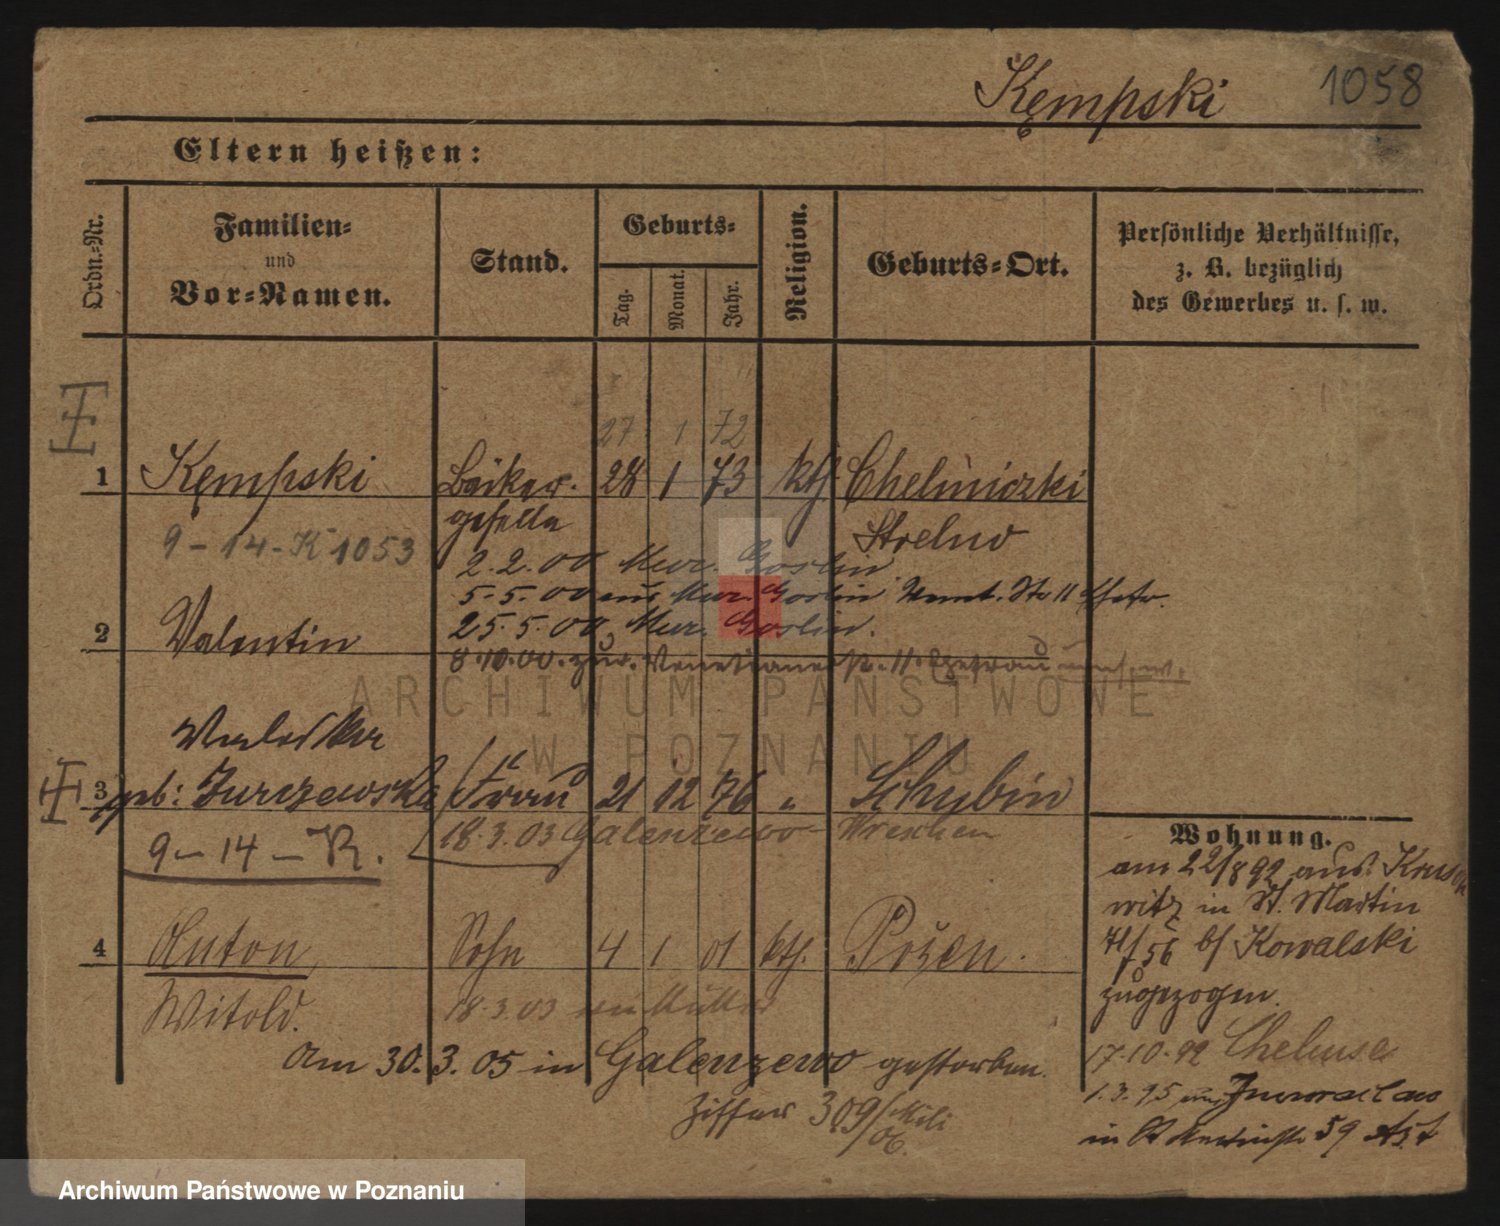 Kempski 1058
Eltern heißen:
Ordn.-Nr.
Familien-
und
Vor-Namen.
Stand.
Geburts-
Tag. Monat. Jahr.
Religion.
Geburts-Ort.
Persönliche Verhältnisse,
z. B. bezüglich
des Gewerbes u. s. w.
27 1 72
1 Kempski Bäcker- 28 1 73 kth. Chelmiczki
geselle Strelno
9-14-K 1053
2.2.00 Mur. Goslin
5.5.00 aus Mur. Goslin 11 Ehefr.
2 Valentin 25.5.00 Mur. Goslin.
8.10.00 zur. Venetianerstr. 11. Ehefrau
ARCHIWUM PAŃSTWOWE
W POZNANIU
Valeska
3 geb: Jurczewska Frau 21 12 76 " Schubin
18.3.03 Galenzewo Wreschen
9-14-K.
4 Anton Sohn 4 1 01 kth. Posen.
Witold. 18.3.03 Mutter
Am 30.3.05 in Galenzewo gestorben.
Ziffer 309/
Wohnung.
am 22/8 92 aus Krusch
witz in St. Martin
56 b/ Kowalski
zugezogen.
17.10.92
1.3.95 aus Inowraclaw
in St. 59
Archiwum Państwowe w Poznaniu